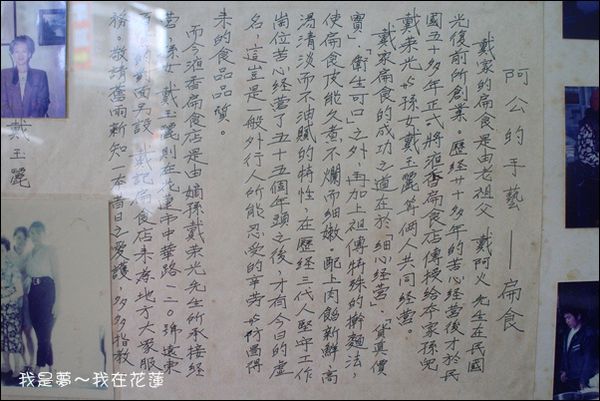 阿公的手藝——扁食
戴家的扁食是由老祖父 戴阿火 先生在民國
光復前所創業。歷經廿十多年的苦心經營後才於民
國五十多年正式將液香扁食店傳授給本家孫兒
戴承光與孫女戴玉麗等個人共同經營。
戴家扁食的成功之道在於「細心經營」、「貨真價
實」、「衛生可口」之外，再加上祖傳特殊的擀麵法，
使扁食皮能久煮不爛而細嫩。配上肉餡新鮮，高
湯清淡而不油膩的特性，在歷經三代人堅牢工作
崗位苦心經營了五十五個年頭之後，才有今日的虛
名，這豈是一般外行人所能忍受的辛勞與防面得
來的食品品質。
而今液香扁食店是由嫡孫戴承光先生所承接經
營，孫女 戴玉麗則在花蓮市中華路一二〇號遠東
對面另設 戴記扁食店來為地方大眾服
務。敬請舊雨新知一本昔日之愛護，多多指教
戴玉麗
我是夢～我在花蓮